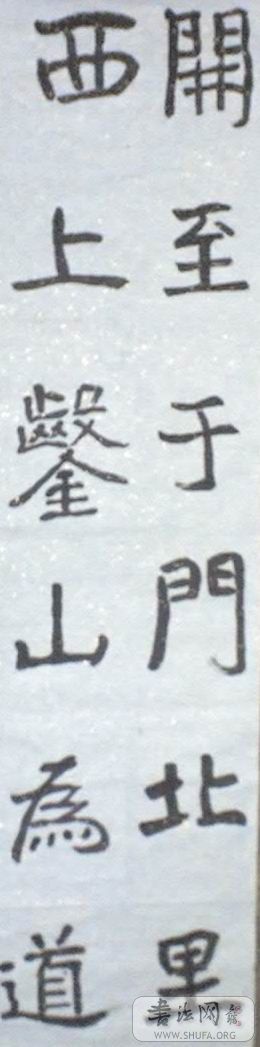 開至于門北里
西上鑿山為道
書法网
WWW.SHUFA.ORG